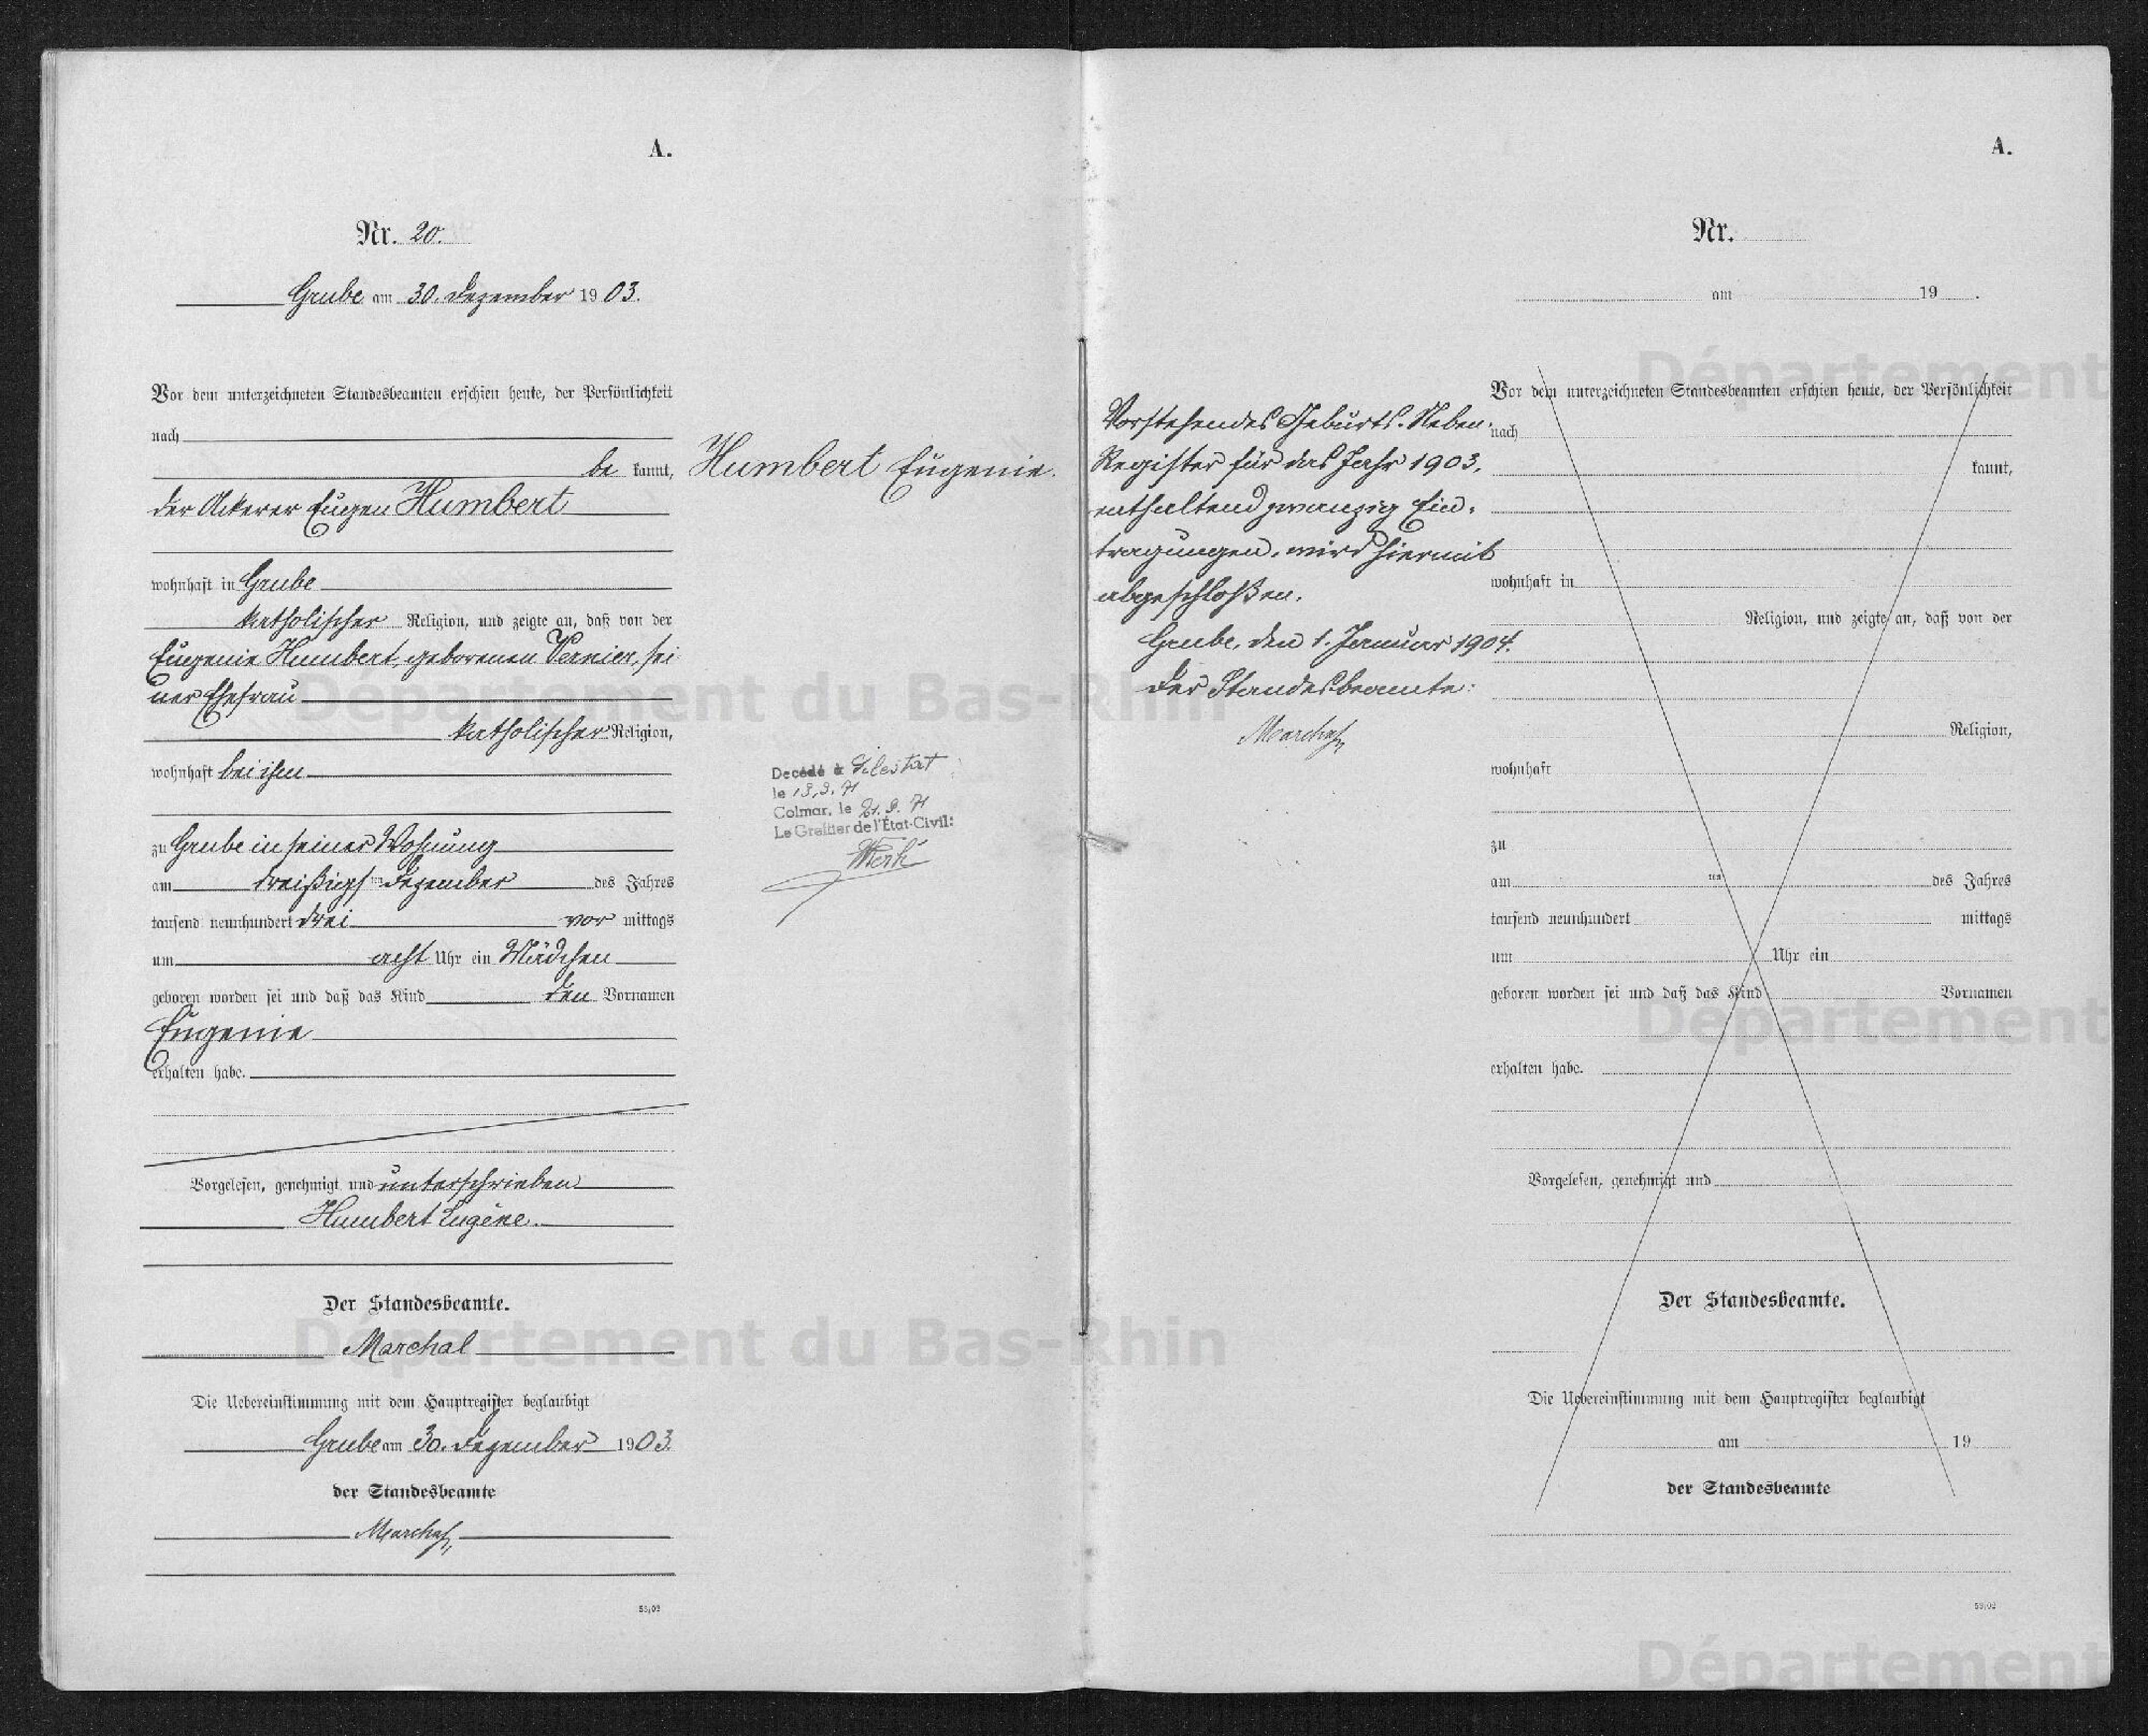 A.
Nr. 20.
Grube am 30. Dezember 1903.
Vor dem unterzeichneten Standesbeamten erschien heute, der Persönlichkeit
nach
be kannt,
der Ackerer Eugen Humbert
wohnhaft in Grube
katholischer Religion, und zeigte an, daß von der
Eugenie Humbert, geborenen Vernier, sei
ner Ehefrau
katholischer Religion,
wohnhaft bei ihm
zu Grube in seiner Wohnung
am dreißigsten Dezember des Jahres
tausend neunhundert drei vor mittags
um acht Uhr ein Mädchen
geboren worden sei und daß das Kind den Vornamen
Eugenie
erhalten habe.
Vorgelesen, genehmigt und unterschrieben
Humbert Eugène.
Der Standesbeamte.
Marchal
Die Uebereinstimmung mit dem Hauptregister beglaubigt
Grube am 30. Dezember 1903.
der Standesbeamte
Marchal
53/03
Humbert Eugenie.
Decédé à Sélestat
le .9.71
Colmar, le 21.9.71
Le Greffier de l'État-Civil:
Vorstehendes Geburts-Neben-
Register für das Jahr 1903,
enthaltend zwanzig Ein-
tragungen, wird hiermit
abgeschloßen.
Grube, den 1. Januar 1904.
Der Standesbeamte:
Marchal
A.
Nr.
am 19 .
Vor dem unterzeichneten Standesbeamten erschien heute, der Persönlichkeit
nach
kannt,
wohnhaft in
Religion, und zeigte an, daß von der
Religion,
wohnhaft
zu
am ten des Jahres
tausend neunhundert mittags
um Uhr ein
geboren worden sei und daß das Kind Vornamen
erhalten habe.
Vorgelesen, genehmigt und
Der Standesbeamte.
Die Uebereinstimmung mit dem Hauptregister beglaubigt
am 19
der Standesbeamte
53/03
Département du Bas-Rhin
Département du Bas-Rhin
Département
Département
Département